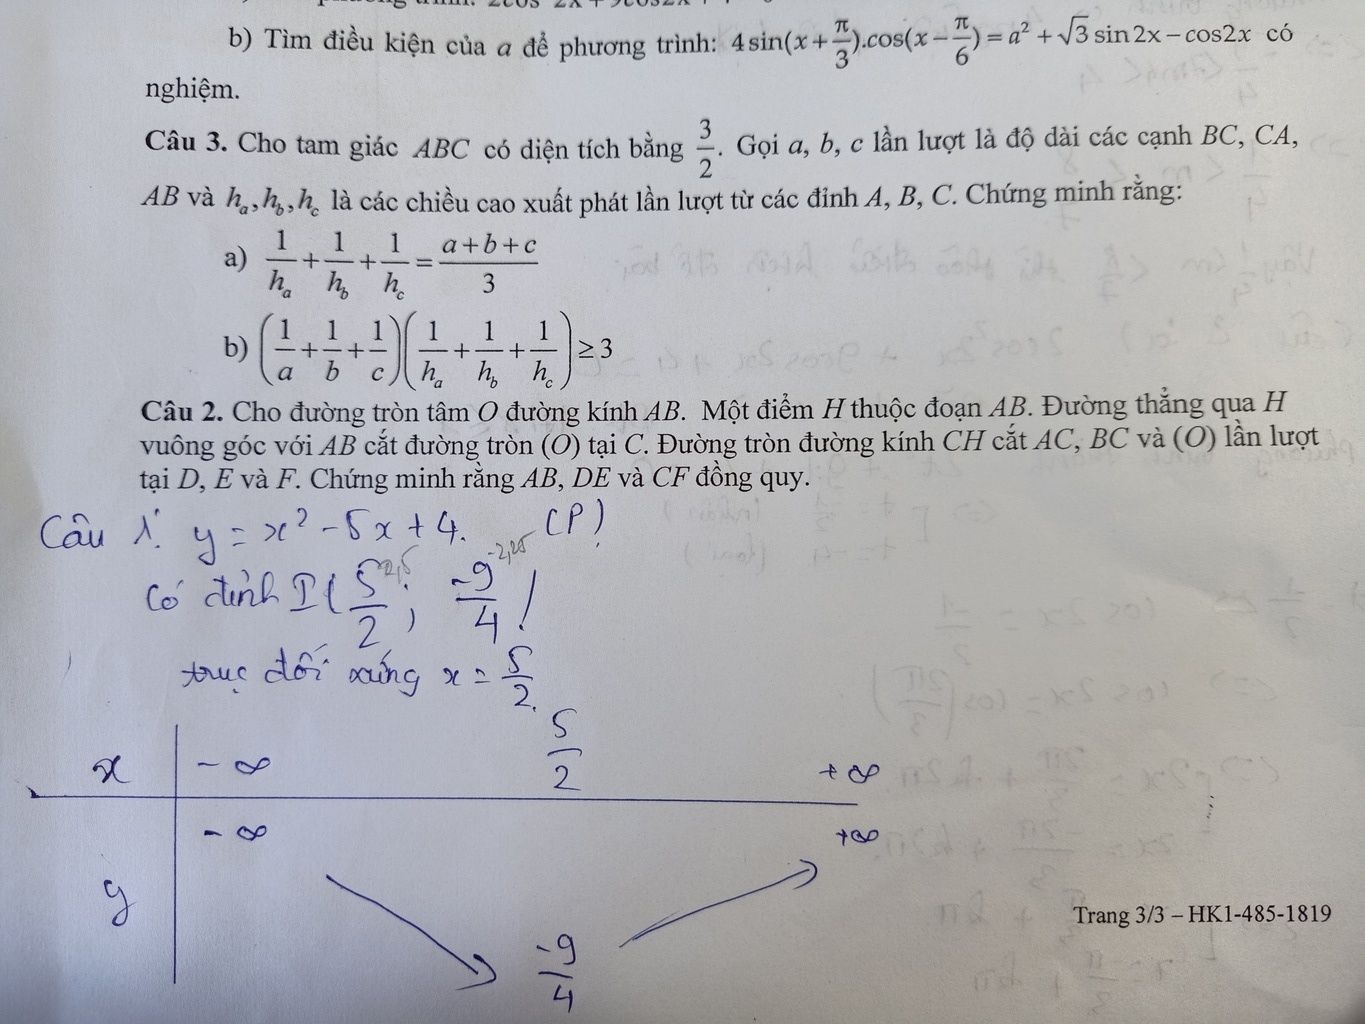 b) Tìm điều kiện của a để phương trình: 4sin(x + π/3).cos(x − π/6) = a² + √3 sin2x − cos2x có
nghiệm.
Câu 3. Cho tam giác ABC có diện tích bằng 3/2. Gọi a, b, c lần lượt là độ dài các cạnh BC, CA,
AB và hₐ, h_b, h_c là các chiều cao xuất phát lần lượt từ các đỉnh A, B, C. Chứng minh rằng:
a) 1/hₐ + 1/h_b + 1/h_c = (a + b + c)/3
b) (1/a + 1/b + 1/c)(1/hₐ + 1/h_b + 1/h_c) ≥ 3
Câu 2. Cho đường tròn tâm O đường kính AB. Một điểm H thuộc đoạn AB. Đường thẳng qua H
vuông góc với AB cắt đường tròn (O) tại C. Đường tròn đường kính CH cắt AC, BC và (O) lần lượt
tại D, E và F. Chứng minh rằng AB, DE và CF đồng quy.
Câu 1. y = x² − 5x + 4. (P)
Có đỉnh I(5/2 2,5; −9/4 −2,25)
trục đối xứng x = 5/2.
x −∞ 5/2 +∞
−∞ +∞
y
−9/4
Trang 3/3 – HK1-485-1819